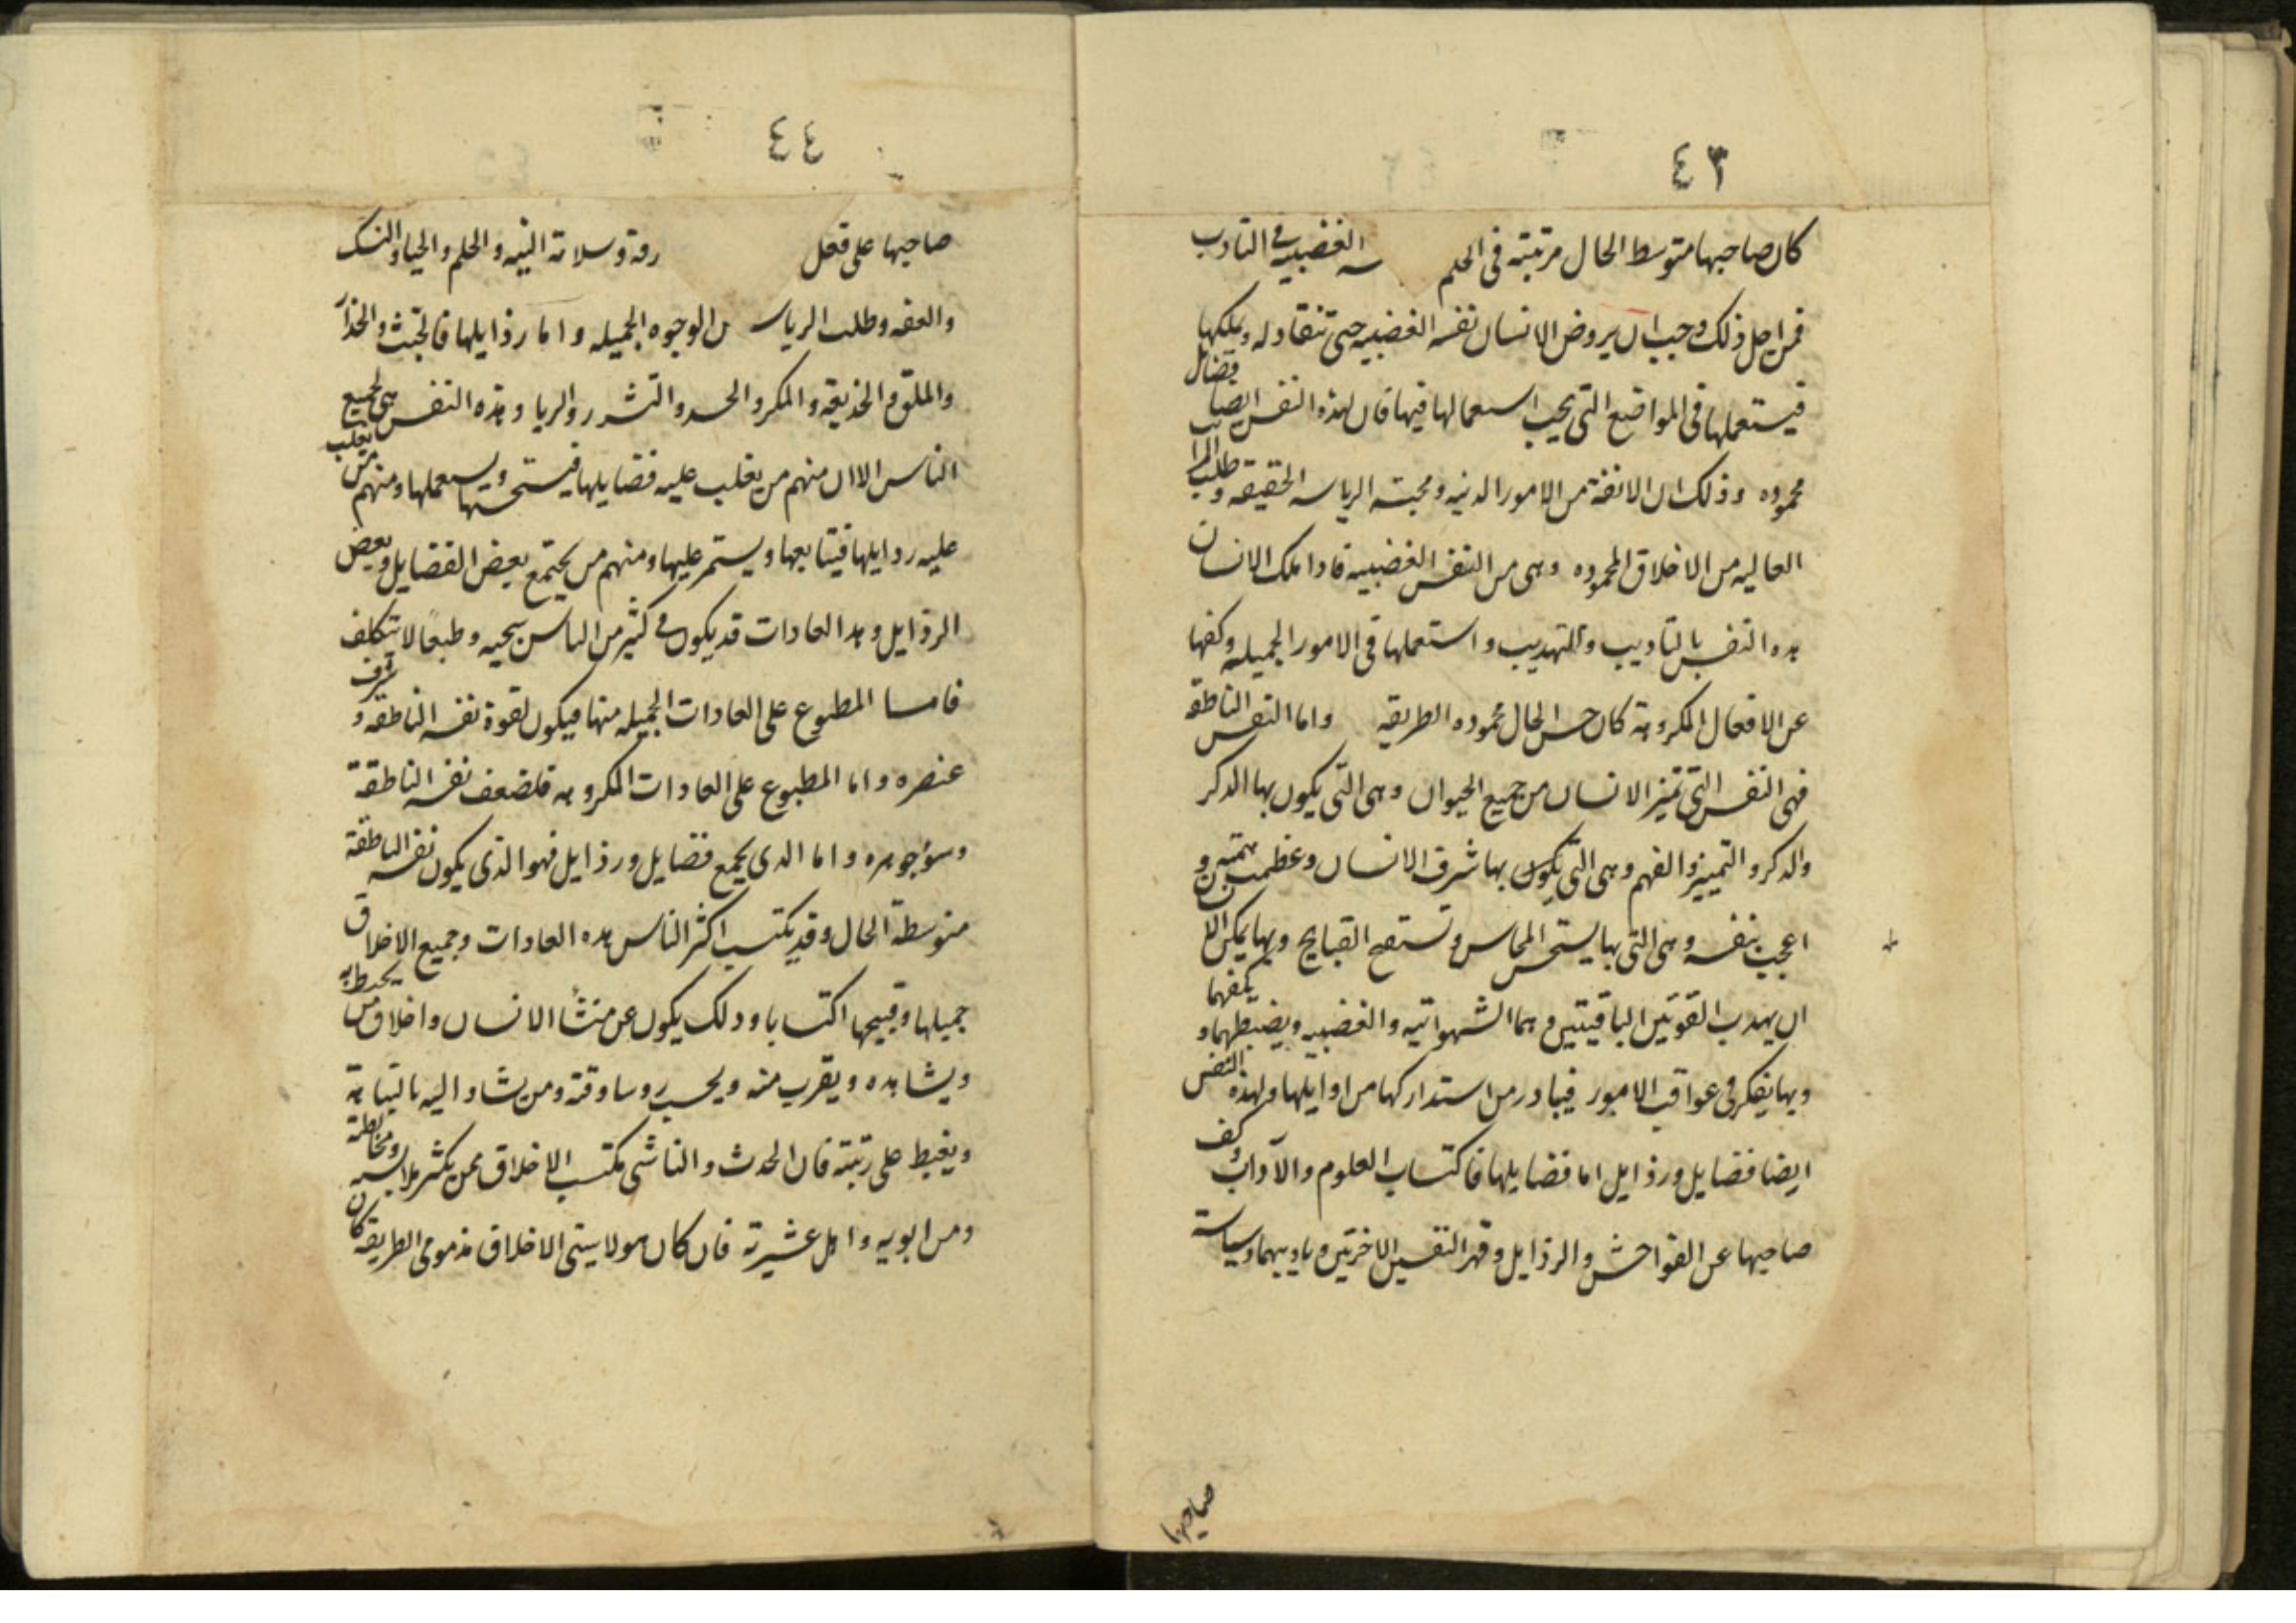 ٤٣
كان صاحبها متوسط الحال مرتبته فى الحلم ـه الغضبيه فى التادب
فمن اجل ذلك وجب ان يروض الانسان نفسه الغضبيه حتى تنقاد له ويملكها
فيستعملها فى المواضع التى يجب استعمالها فيها فان لهذه النفس ايضا فضائل
محموده وذلك ان الانفة من الامور الدنيه ومحبته الرياسه الحقيقه وطلب المراتب
العاليه من الاخلاق المحموده وهى من النفس الغضبيه فاذا ملك الانسان
هذه النفس بالتاديب والتهديب واستعملها فى الامور الجميله وكفها
عن الافعال المكروهة كان حسن الحال محموده الطريقه واما النفس الناطقه
فهى النفس التى تميز الانسان من جميع الحيوان وهى التى يكون بها الفكر
والذكر والتمييز والفهم وهى التى يكون بها شرف الانسان وعظمت همته و
اعجب بنفسه وهى التى بها يستحسن المحاسن وتستقبح القبايح وبها يمكن الانسان
ان يهدب القوتين الباقيتين وهما الشهوانيه والغضبيه ويضبطهما ويكفهما
وبها يفكر فى عواقب الامور فيبادر من استدراكها من اوايلها ولهذه النفس
ايضا فضايل ورذايل اما فضايلها فاكتساب العلوم والآداب وكف
صاحبها عن الفواحش والرذايل وقهر النفسين الاخرتين وتاديبهما وسياسة
صاحبها
٤٤
صاحبها على فعل رفة وسلامة النيه والحلم والحيا والنسك
والعفه وطلب الرياسه من الوجوه الجميله واما رذايلها فالخبث والخذ
والملق والخديعة والمكر والحسد والتشرر والريا وهذه النفس هى لجميع
الناس الا ان منهم من يغلب عليه فضايلها فيستحسنها ويستعملها ومنهم من يغلب
عليه رذايلها فيتابعها ويستمر عليها ومنهم من يجتمع بعض الفضايل وبعض
الرذايل وهذه العادات قد يكون فى كثير من الناس سجيه وطبعًا لا بتكلف
فامسا المطبوع على العادات الجميله منها فيكون لقوة نفسه الناطقه وشرف
عنصره واما المطبوع على العادات المكروهه فلضعف نفسه الناطقة
وسوء جوهره واما الذى يجمع فضايل ورذايل فهو الذى يكون نفسه الناطقة
متوسطة الحال وقد يكتسب اكثر الناس هذه العادات وجميع الاخلاق
جميلها وقبيحها اكتسابا وذلك يكون عن منشأ الانسان واخلاق من يحيط به
ويشاهده ويقرب منه وبحسب روسا وقته ومن يشار اليه بالنباهة
ويغبط على رتبته فان الحدث والناشى يكتسب الاخلاق ممن يكثر ملابسه ومخالطته
ومن ابويه واهل عشيرته فان كان هولا سيئى الاخلاق مذمومى الطريقه كان